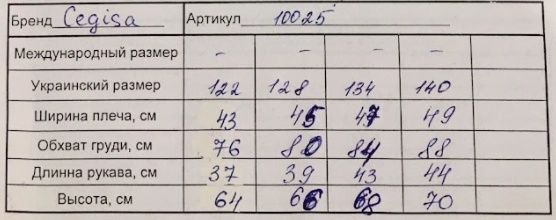 Бренд Cegisa Артикул 10025
Международный размер - - - -
Украинский размер 122 128 134 140
Ширина плеча, см 43 45 47 49
Обхват груди, см 76 80 84 88
Длинна рукава, см 37 39 43 44
Высота, см 64 66 68 70